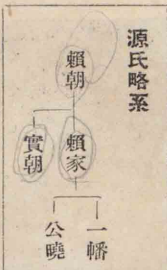 源氏略系
賴朝
賴家
實朝
一幡
公曉